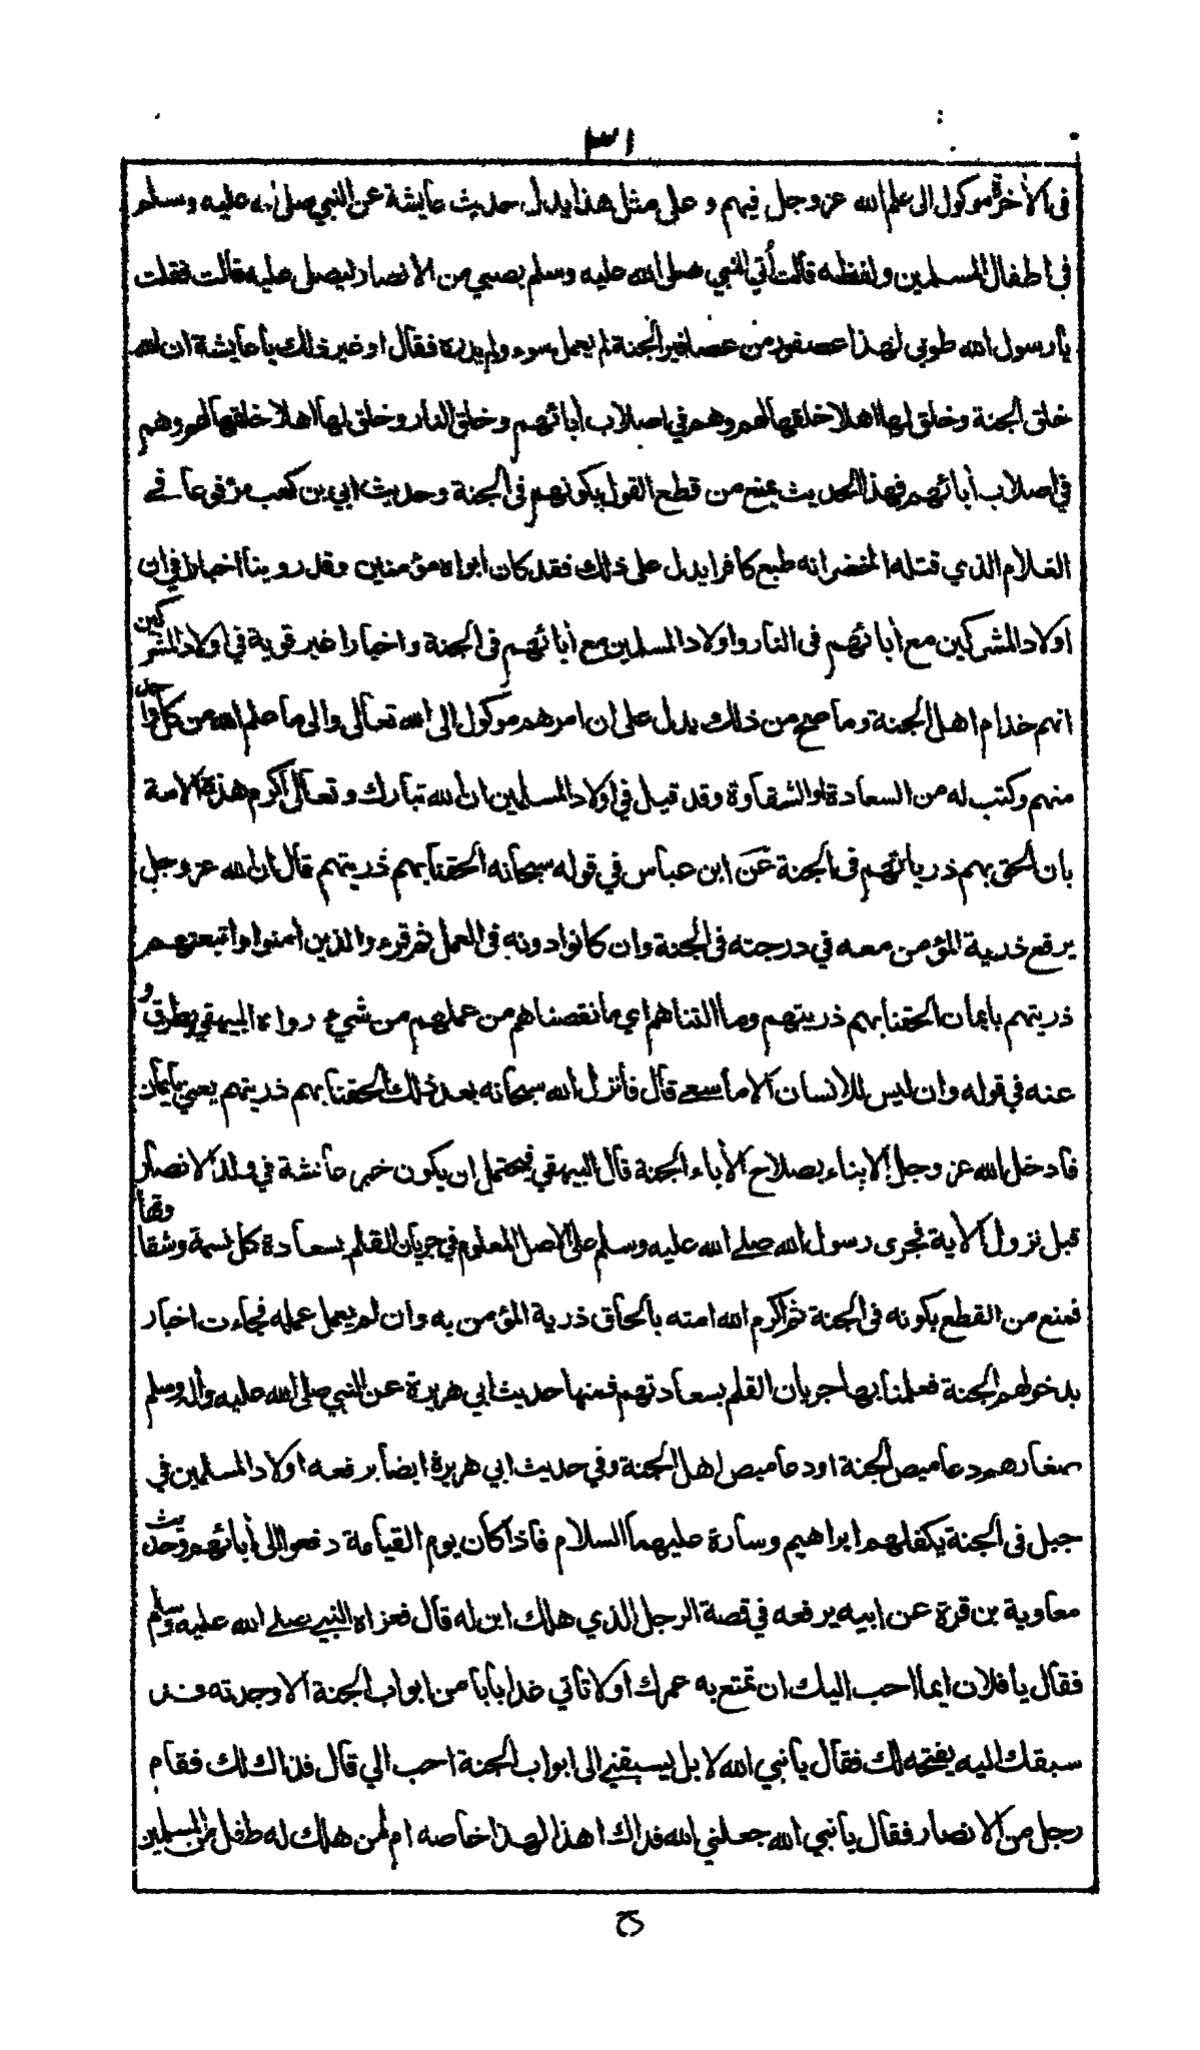 ٣١
فى الأخرة موكول الى علم الله عز وجل فيهم و على مثل هذا يدل حديث عايشة عن النبي صلى الله عليه وسلم
فى اطفال المسلمين ولفظه قالت أتي النبي صلى الله عليه وسلم بصبي من الانصار ليصلى عليه قالت فقلت
يا رسول الله طوبى لهذا عصفور من عصافير الجنة لم يعمل سوء ولم يدره فقال او غير ذلك يا عايشة ان الله
خلق الجنة وخلق لها اهلا خلقها لهم وهم في اصلاب أبائهم وخلق النار وخلق لها اهلا خلقها لهم وهم
في اصلاب أبائهم فهذا الحديث يمنع من قطع القول بكونهم فى الجنة وحديث ابي بن كعب مرفوعا في
الغلام الذي قتله الخضر انه طبع كافرا يدل على ذلك فقد كان ابواه مؤمنين وقد روينا اخبارا في ان
اولاد المشركين مع أبائهم فى النار واولاد المسلمين مع أبائهم فى الجنة واخبارا غير قوية في اولاد المشركين
انهم خدام اهل الجنة وما صح من ذلك يدل على ان امرهم موكول الى الله تعالى والى ما علم الله من كل واحد
منهم وكتب له من السعادة او الشقاوة وقد قيل في اولاد المسلمين ان الله تبارك وتعالى اكرم هذة الامة
بان الحق بهم ذرياتهم فى الجنة عن ابن عباس في قوله سبحانه الحقنا بهم ذريتهم قال ان الله عز وجل
يرفع ذرية المؤمن معه في درجته فى الجنة وان كانوا دونه فى العمل ثم قرء والذين أمنوا واتبعتهم
ذريتهم بايمان الحقنا بهم ذريتهم وما التناهم اي ما نقصناهم من عملهم من شيء رواه البيهقي بطرق و
عنه في قوله وان ليس للانسان الا ما سعى قال فأنزل الله سبحانه بعد ذلك الحقنا بهم ذريتهم يعني بايمان
فادخل الله عز وجل الابناء بصلاح الأباء الجنة قال البيهقي فيحتمل ان يكون خبر عائشة في ولد الانصار
قبل نزول الأية فجرى رسول الله صلى الله عليه وسلم على الاصل المعلوم في جريان القلم بسعادة كل نسمة وشقاوتها
فمنع من القطع بكونه فى الجنة ثم اكرم الله امته بالحاق ذرية المؤمن به وان لم يعمل عمله فجاءت اخبار
بدخولهم الجنة فعلمنا بها جريان القلم بسعادتهم فمنها حديث ابي هريرة عن النبي صلى الله عليه وأله وسلم
صغارهم دعاميص الجنة او دعاميص اهل الجنة وفي حديث ابي هريرة ايضا يرفعه اولاد المسلمين في
جبل فى الجنة يكفلهم ابراهيم وسارة عليهما السلام فاذا كان يوم القيامة دفعوا الى أبائهم وحديث
معاوية بن قرة عن ابيه يرفعه في قصة الرجل الذي هلك ابن له قال فعزاه النبي صلى الله عليه وسلم
فقال يا فلان ايما احب اليك ان تمتع به عمرك او لا تأتي غدا بابا من ابواب الجنة الا وجدته قد
سبقك اليه يفتحه لك فقال يا نبي الله لا بل يسبقني الى ابواب الجنة احب الي قال فذاك لك فقام
رجل من الانصار فقال يا نبي الله جعلني الله فداك اهذا لهذا خاصه ام لمن هلك له طفل من المسلمين
ح